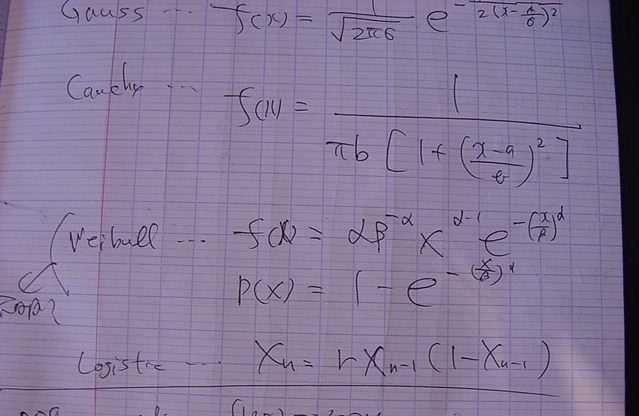 Gauss ... f(x) = 1/√2πσ e^-1/2(x-μ/σ)²
Cauchy ... f(x) = 1/πb[1+(x-a/b)²]
Weibull ... f(x) = αβ^-α x^α-1 e^-(x/β)^α
P(x) = 1 - e^-(x/β)^α
Logistic ... Xn = rXn-1(1-Xn-1)